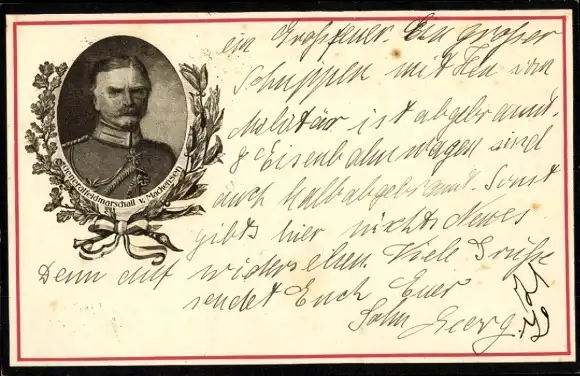 Generalfeldmarschall v. Mackensen
ein Großfeuer. Ein großer
Schuppen mit Heu vom
Militär ist abgebrannt.
8 Eisenbahnwagen sind
auch halb abgebrannt. Sonst
gibts hier nichts Neues
Denn auf widersehen. Viele Grüße
sendet Euch Euer
Sohn Georg.